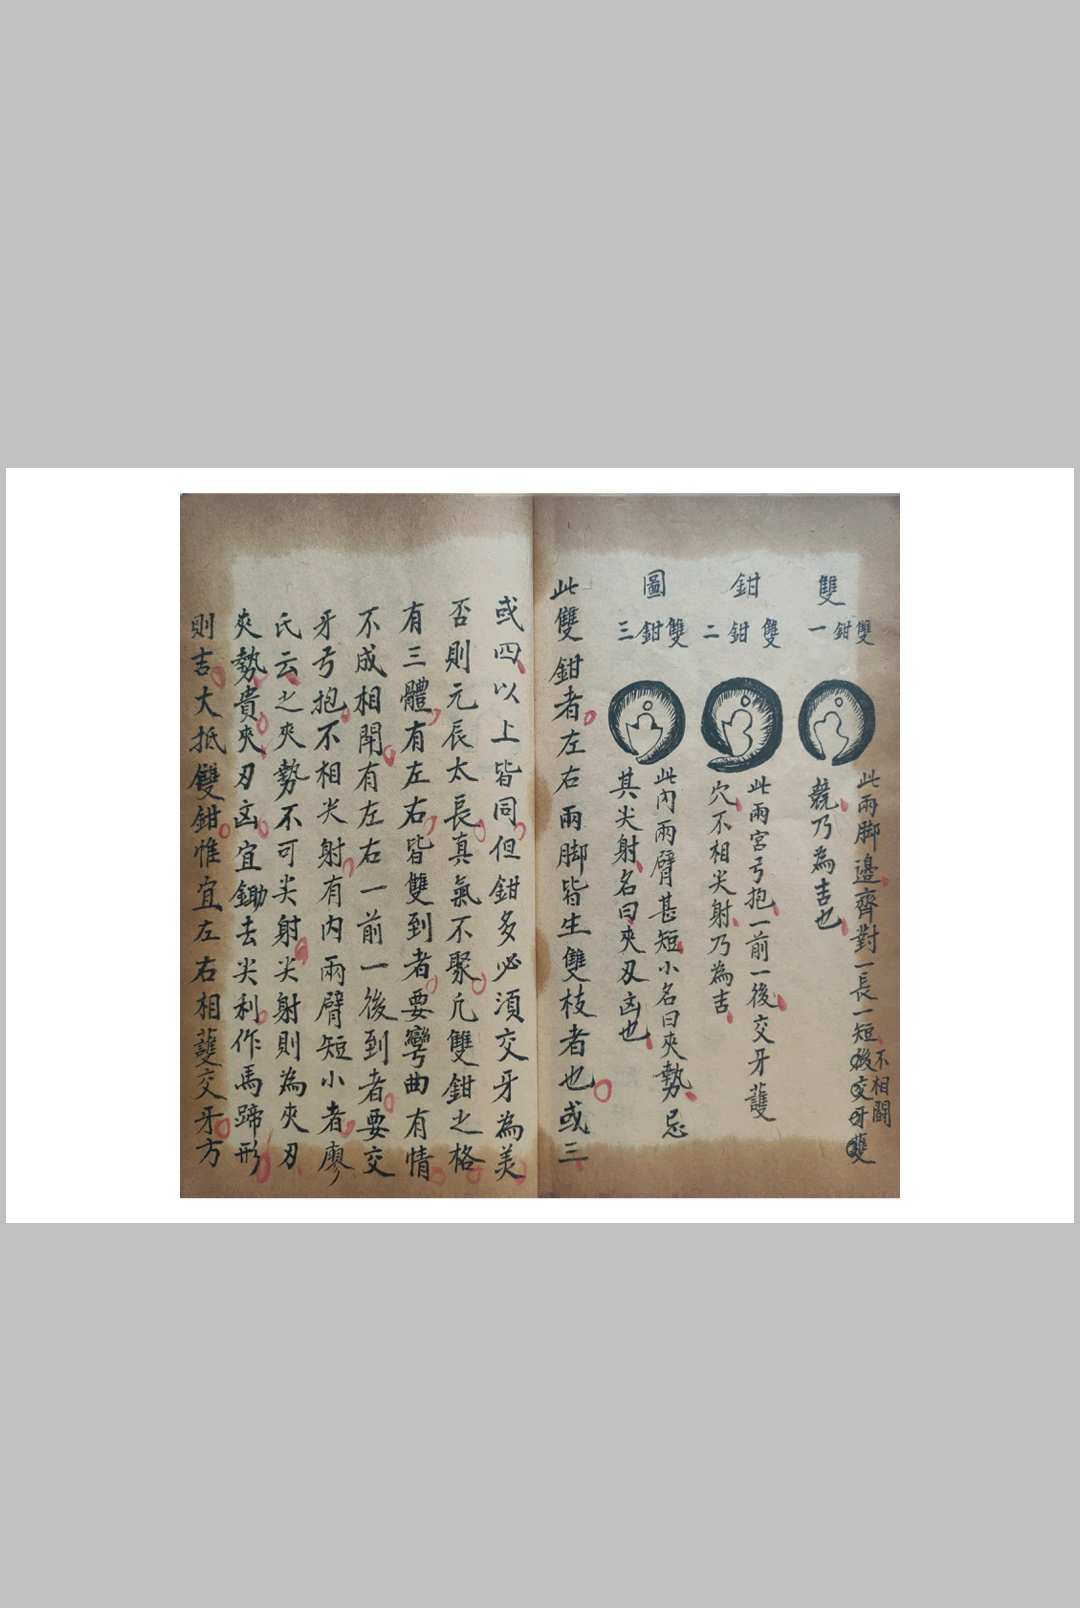 雙
鉗
圖
雙鉗一
此兩脚邊齊對一長一短
不相鬪
競乃為吉也
雙鉗二
此兩宮弓抱一前一後交牙護
穴不相尖射乃為吉
雙鉗三
此內兩臂甚短小名曰夾勢忌
其尖射名曰夾刃凶也
此雙鉗者左右兩脚皆生雙枝者也或三
或四以上皆同但鉗多必須交牙為美
否則元辰太長真氣不聚凡雙鉗之格
有三體有左右皆雙到者要彎曲有情
不成相鬪有左右一前一後到者要交
牙弓抱不相尖射有内兩臂短小者廖
氏云之夾勢不可尖射尖射則為夾刃
夾勢貴夾刃凶宜鋤去尖利作馬蹄形
則吉大抵雙鉗惟宜左右相護交牙方